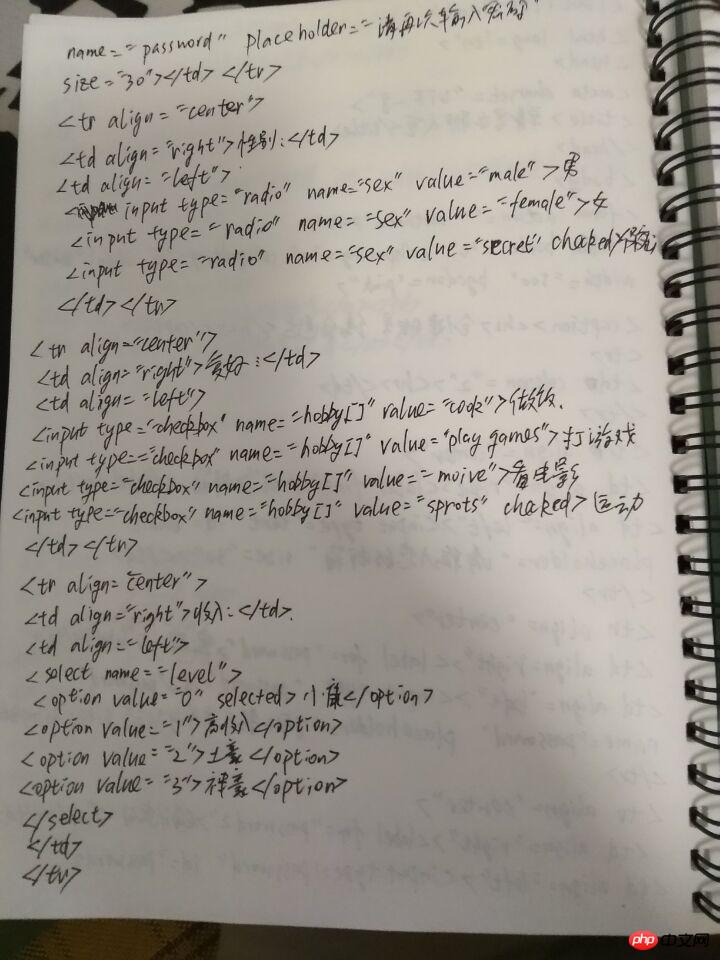 name="password" placeholder="请再次输入密码"
size="30"></td> </tr>
<tr align="center">
<td align="right">性别:</td>
<td align="left">
input type="radio" name="sex" value="male">男
<input type="radio" name="sex" value="female">女
<input type="radio" name="sex" value="secret" checked>
</td></tr>
<tr align="center">
<td align="right">爱好:</td>
<td align="left">
<input type="checkbox" name="hobby[]" value="cook">做饭.
<input type=="checkbox" name="hobby[]" value="play games">打游戏
<input type="checkbox" name="hobby[]" value="moive">看电影
<input type="checkbox" name="hobby[]" value="sprots" checked>运动
</td></tr>
<tr align="center">
<td align="right">收入:</td>.
<td align="left">
<select name="level">
<option value="0" selected>小康</option>
<option value="1">高收入</option>
<option value="2">土豪</option>
<option value="3">神豪</option>
</select>
</td>
</tr>
php 中文网